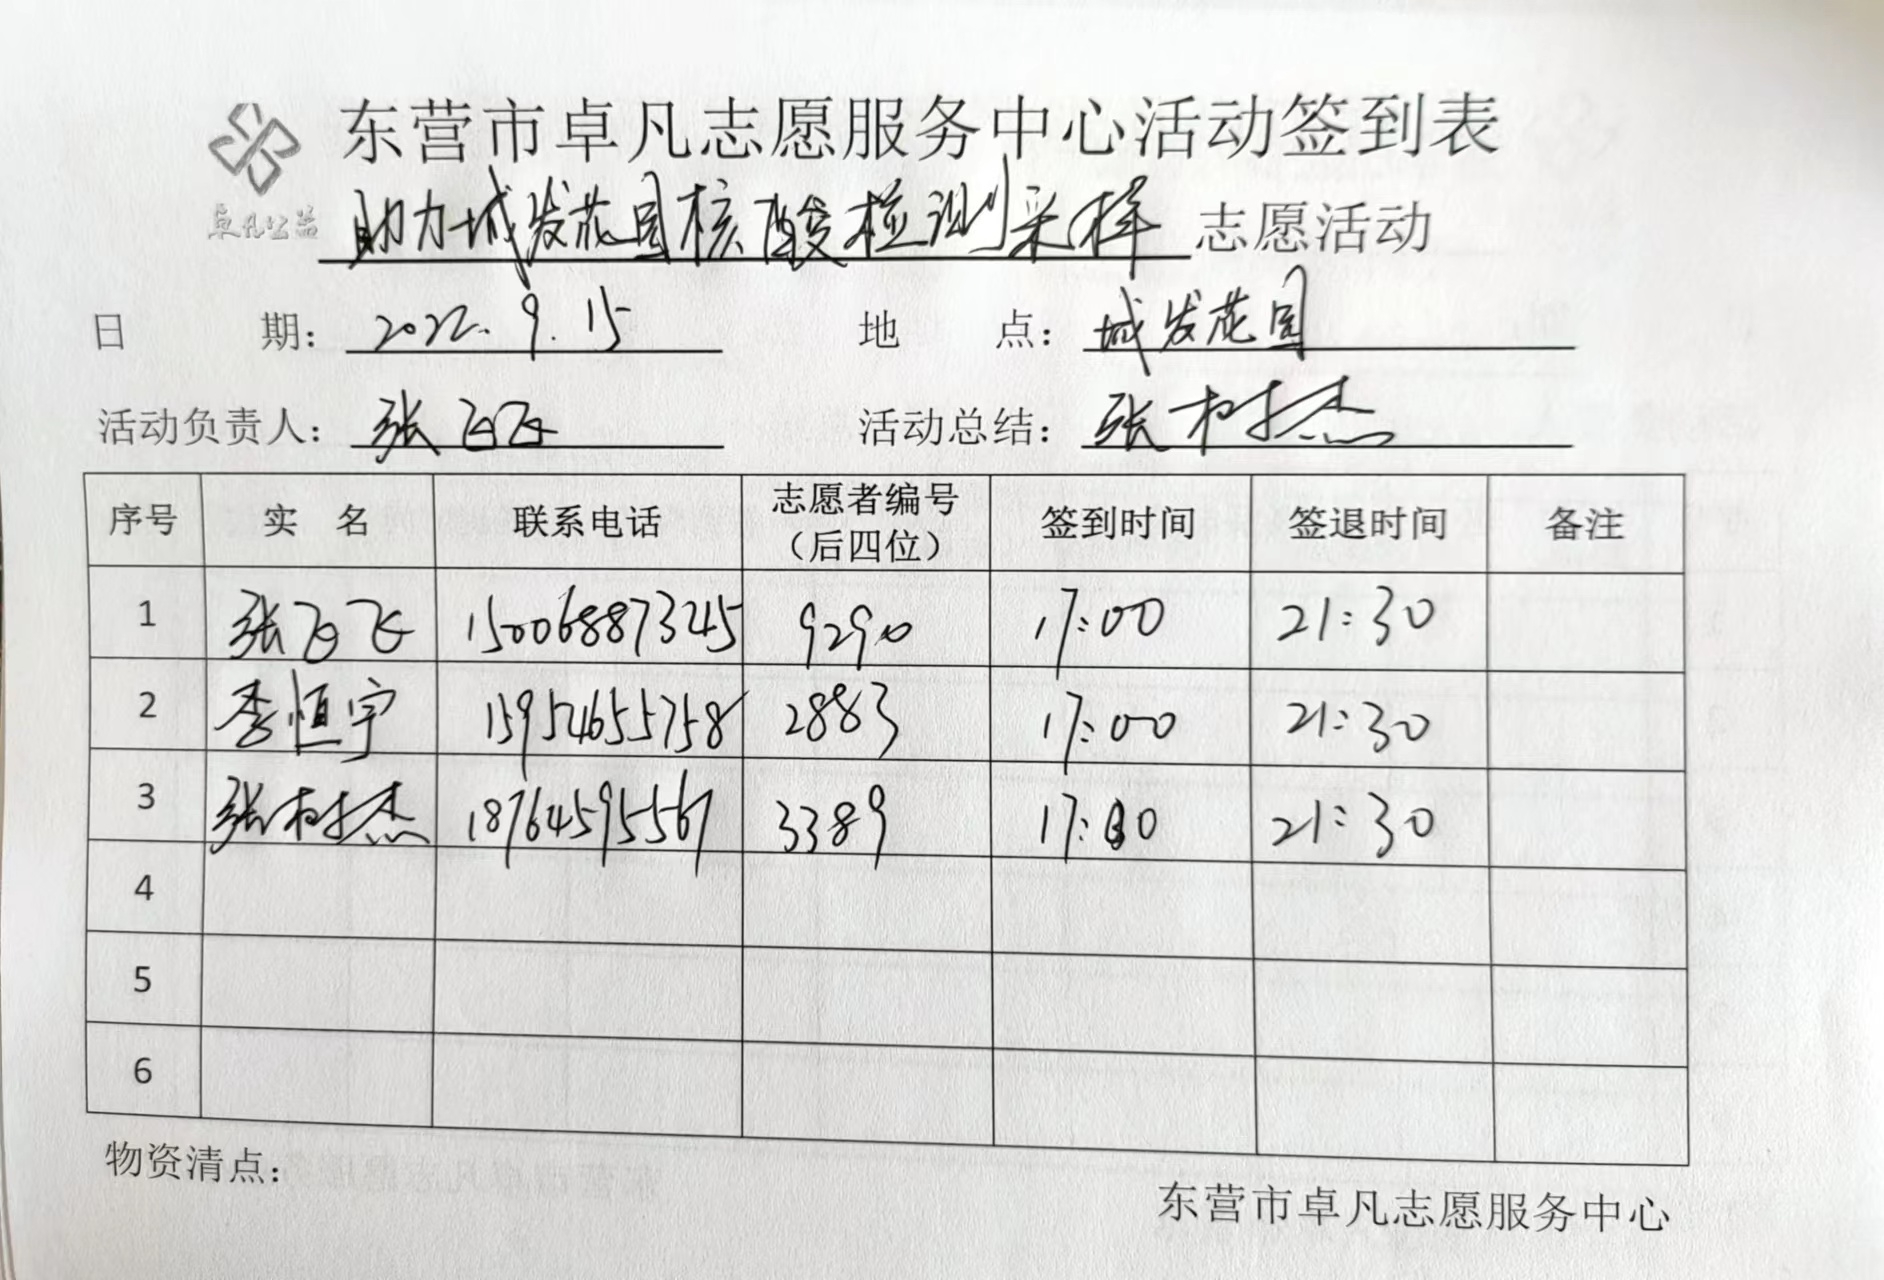 东营市卓凡志愿服务中心活动签到表
卓凡公益
助力城发花园核酸检测采样 志愿活动
日 期： 2022.9.15 地 点： 城发花园
活动负责人： 张飞飞 活动总结： 张树杰
序号 实 名 联系电话 志愿者编号（后四位） 签到时间 签退时间 备注
1 张飞飞 15006887345 9290 17:00 21:30
2 李恒宇 15954655758 2883 17:00 21:30
3 张树杰 18764595567 3389 17:00 21:30
4
5
6
物资清点：
东营市卓凡志愿服务中心